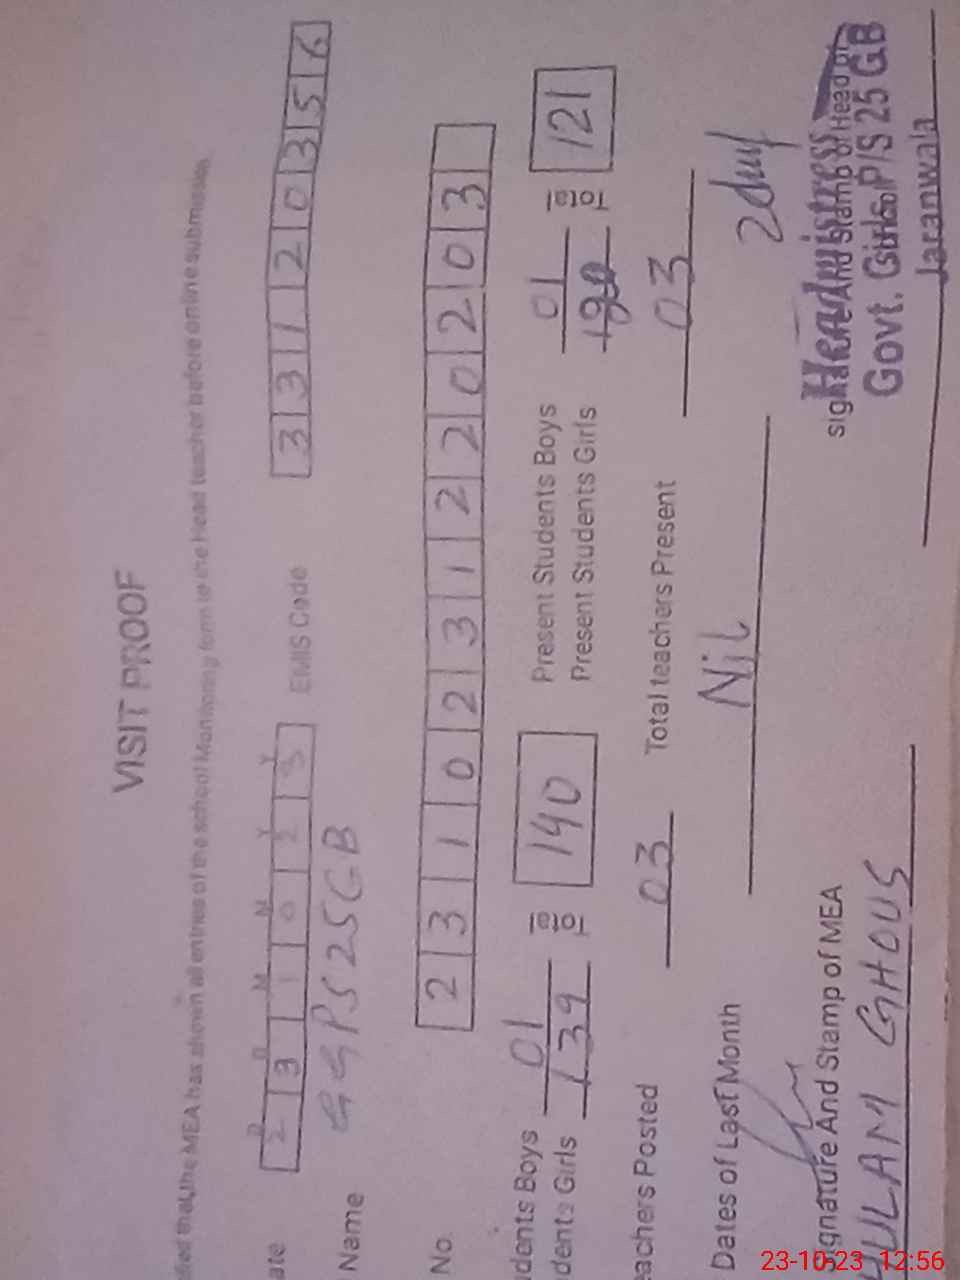 VISIT PROOF
that the MEA has shown all entries of the school Monitoring form to the Head teacher before online submission.
ate D D M M Y Y 2 3 1 0 2 3 EMIS Code 3 3 1 2 0 3 5 6
Name GGPS 25 GB
No. 2 3 1 0 2 3 1 2 2 0 2 0 3
dents Boys 01 Total 140 Present Students Boys 01 Total 121
dents Girls 139 Present Students Girls
eachers Posted 03 Total teachers Present 03
Dates of Last Month Nil
Signature And Stamp of MEA
HULAM GHOUS
Headmistress
Govt. Girls P/S 25 GB
Jaranwala
23-10-23 12:56